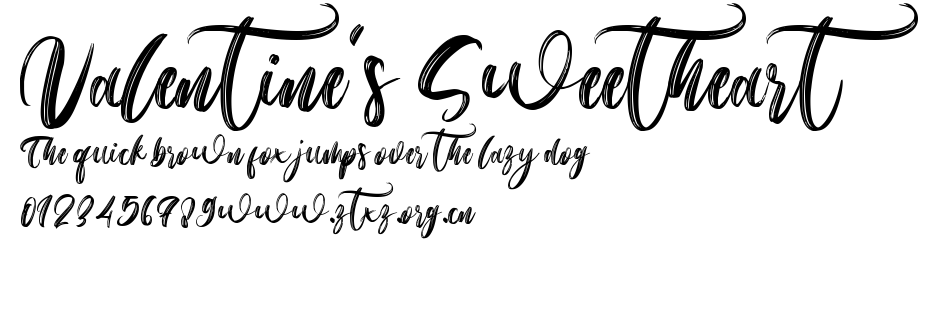 Valentine's Sweetheart
The quick brown fox jumps over the lazy dog
0123456789www.ztxz.org.cn